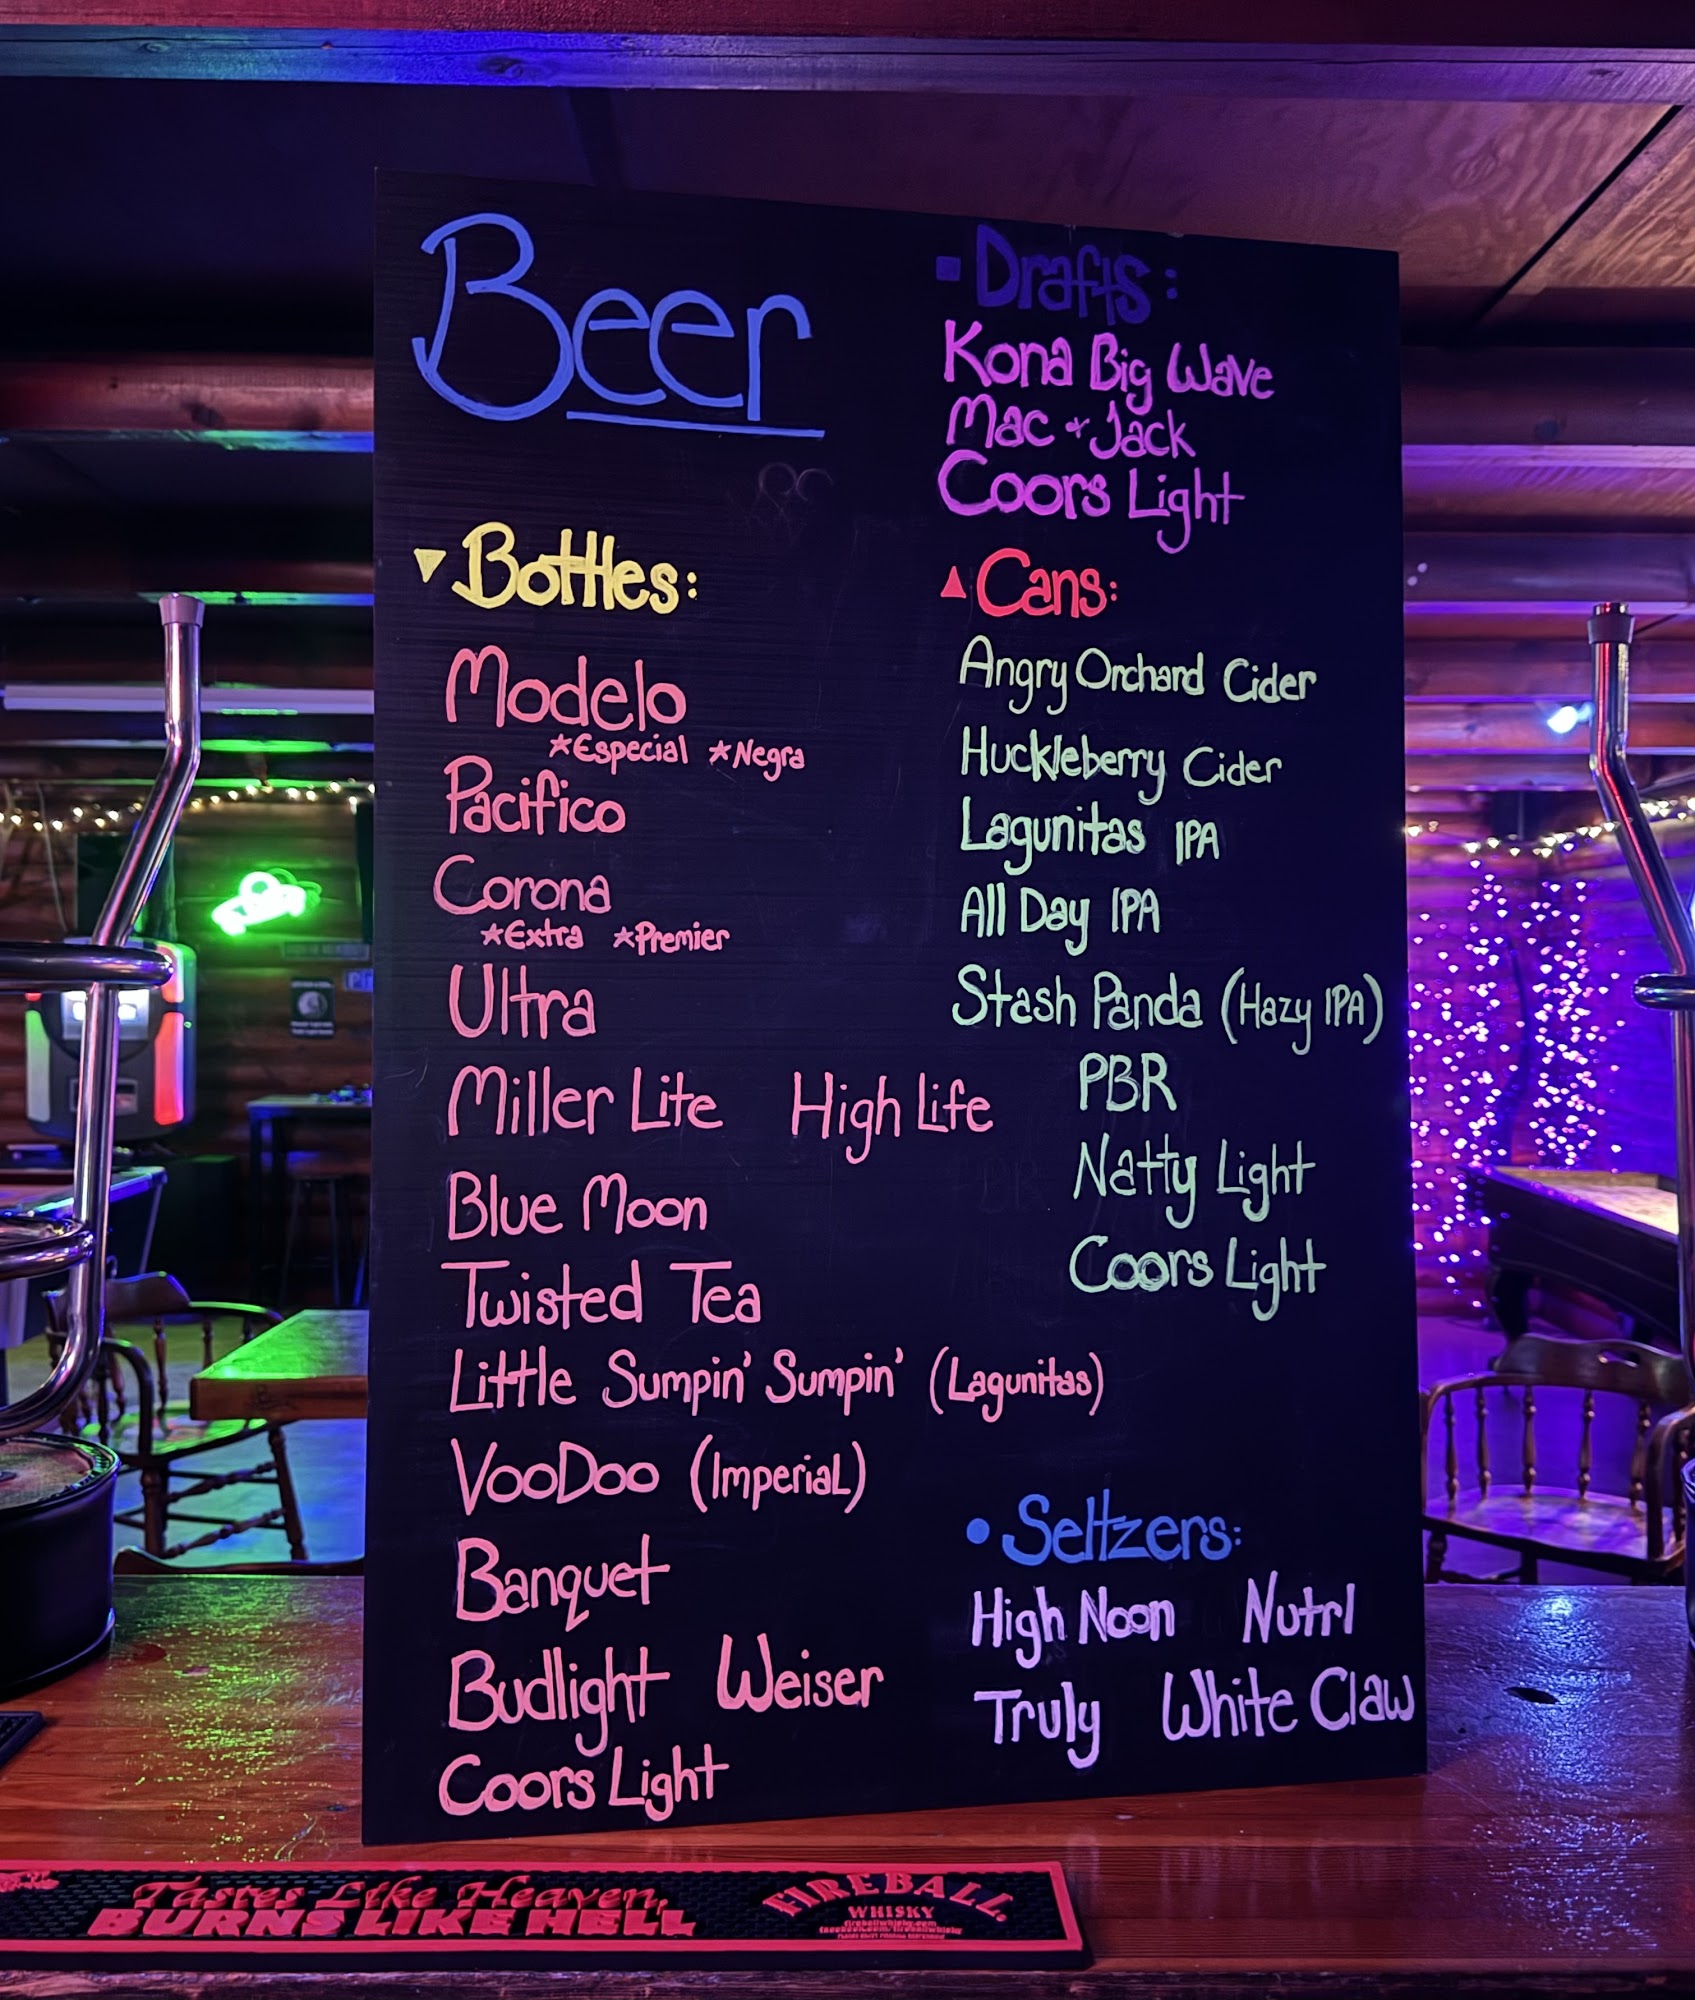 Beer
Bottles:
Modelo
*Especial *Negra
Pacifico
Corona
*Extra *Premier
Ultra
Miller Lite High Life
Blue Moon
Twisted Tea
Little Sumpin' Sumpin' (Lagunitas)
VooDoo (ImperiaL)
Banquet
Budlight Weiser
Coors Light
Drafts:
Kona Big Wave
Mac + Jack
Coors Light
Cans:
Angry Orchard Cider
Huckleberry Cider
Lagunitas IPA
All Day IPA
Stash Panda (Hazy IPA)
PBR
Natty Light
Coors Light
Seltzers:
High Noon Nutrl
Truly White Claw
Tastes Like Heaven,
BURNS LIKE HELL
FIREBALL
WHISKY